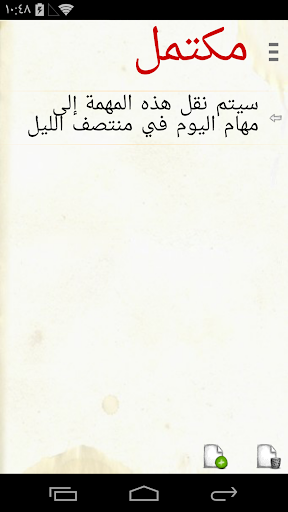 ١٠:٤٨
مكتمل
سيتم نقل هذه المهمة إلى
مهام اليوم في منتصف الليل